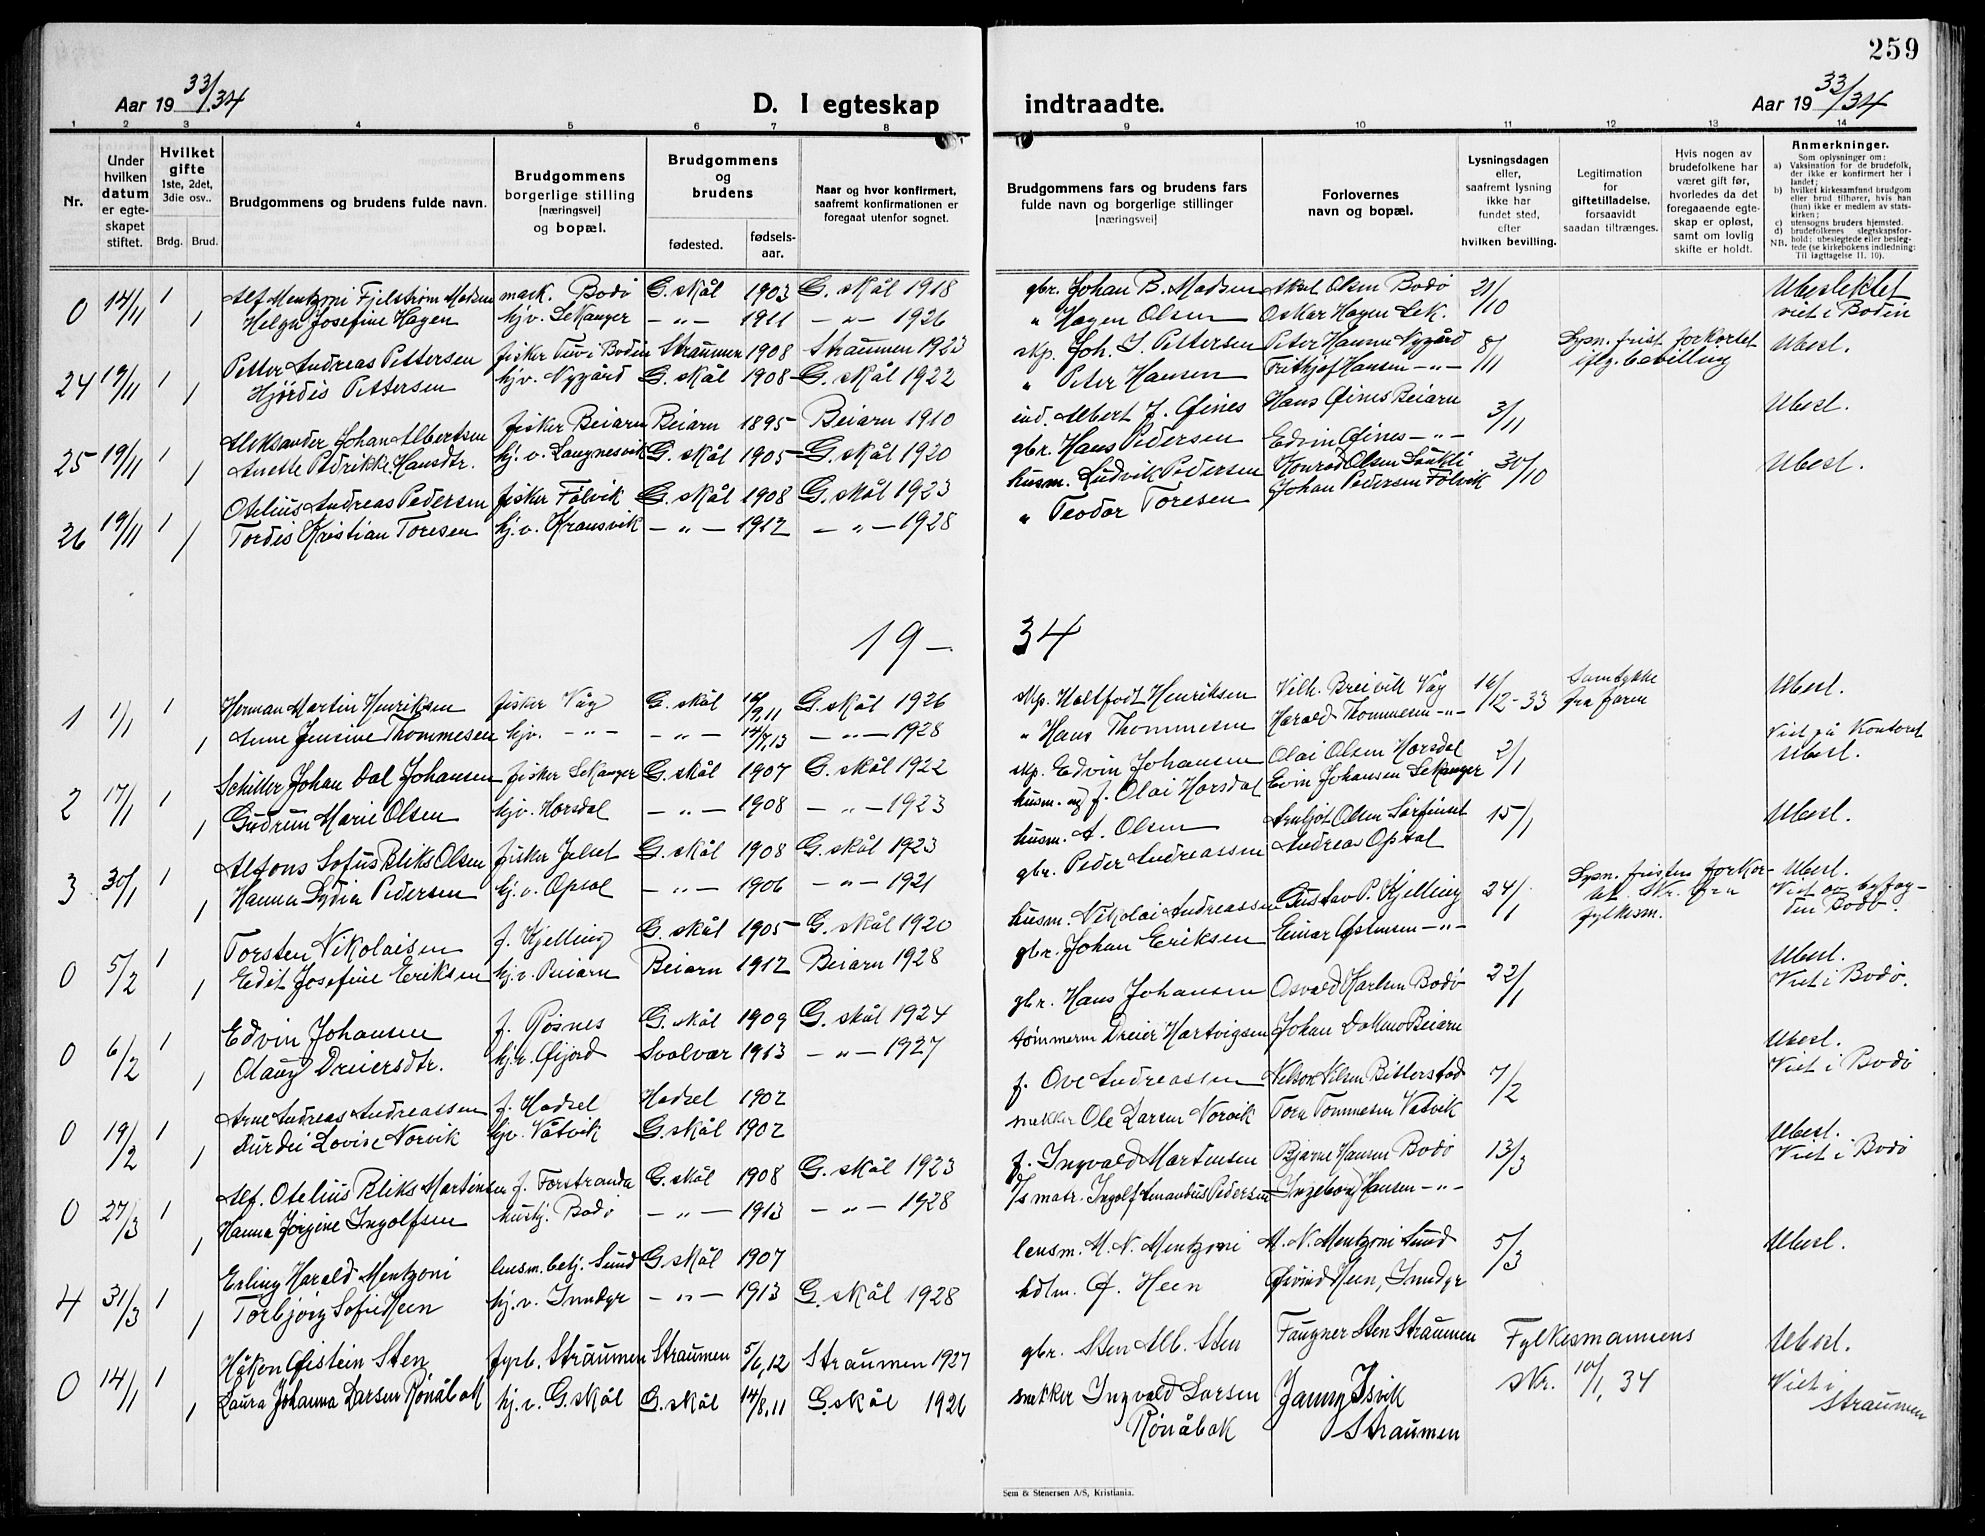 259
Aar 19 33/34
D. I egteskap
indtraadte.
Aar 19 33/34
1 2 3 4 5 6 7 8 9 10 11 12 13 14
Nr.
Under hvilken datum er egteskapet stiftet.
Hvilket gifte 1ste, 2det, 3die osv..
Brdg. Brud.
Brudgommens og brudens fulde navn.
Brudgommens borgerlige stilling [næringsvei] og bopæl.
Brudgommens og brudens
fødested.
fødsels-aar.
Naar og hvor konfirmert, saafremt konfirmationen er foregaat utenfor sognet.
Brudgommens fars og brudens fars fulde navn og borgerlige stillinger [næringsvei]
Forlovernes navn og bopæl.
Lysningsdagen eller, saafremt lysning ikke har fundet sted, efter hvilken bevilling.
Legitimation for giftetilladelse, forsaavidt saadan tiltrænges.
Hvis nogen av brudefolkene har været gift før, hvorledes da det foregaaende egteskap er opløst, samt om lovlig skifte er holdt.
Anmerkninger.
Som oplysninger om:
a) Vaksination for de brudefolk, der ikke er konfirmert her i landet;
b) hvilket kirkesamfund brudgom eller brud tilhører, hvis han (hun) ikke er medlem av statskirken;
c) utensogns bruders hjemsted.
d) brudefolkenes slegtskapsforhold: ubeslegtede eller beslegtede (se kirkebokens indledning:
NB. Til iagttagelse II. 10).
0 14/11 1 Alf Mentzoni Fjelstrøm Madsen mask. Bodø G. skål 1903 G. skål 1918 gbr. Johan B. Madsen Olsen Bodø 21/10 Ubeslektet
1 Helga Josefine Hagen hjv. Sekanger — " — 1911 — " — 1926 " Hagen Olsen Oskar Hagen Sek. viet i Bodin
24 19/11 1 Petter Andreas Pettersen fisker Tuv i Bodin Straumen 1908 Straumen 1923 skp. Joh. I. Pettersen Peter Hansen Nygård 8/11 Lysn. frist forkortet Ubesl.
1 Hjördis Pettersen hjv. Nygård G. skål 1908 G. skål 1922 " Peter Hansen Frithjof Hansen — " — iflg. bevilling
25 19/11 1 Aleksander Johan Albertsen fisker Beiarn Beiarn 1895 Beiarn 1910 ind. Albert J. Øines Hans Øines Beiarn 3/11 Ubesl.
1 Anette Pedrikke Hansdtr. hj. v. Langnesvik G. skål 1905 G. skål 1920 gbr. Hans Pedersen Edvin Øines — " —
26 19/11 1 Otelius Andreas Pedersen fisker Fölvik G. skål 1908 G. skål 1923 husm. Ludvik Pedersen Konrad Olsen 30/10 Ubesl.
1 Tordis Kristian Toresen hj. v. Kransvik — " — 1912 — " — 1928 " Teodor Toresen Johan Pedersen Fölvik
19 — 34
1 1/1 1 Herman Martin Henriksen fisker Våg G. skål 9,11 G. skål 1926 skp. Henriksen Vilh. Breivik Våg 16/12-33 Samtykke Ubesl.
1 Anne Jensine Thommesen hjv. — " — — " — 14/7,13 — " — 1928 " Hans Thommesen Harald Thommesen — " — fra faren
2 17/1 1 Schiller Johan Dal Johansen fisker Sekanger G. skål 1907 G. skål 1922 skp. Edvin Johansen Olai Olsen Horsdal 2/1 Viet på Kontoret Ubesl.
1 Gudrun Marie Olsen hjv. Horsdal — " — 1908 — " — 1923 husm. og f. Olai Horsdal Johansen Sekanger
3 30/1 1 Alfons Sofus Bliks Olsen fisker G. skål 1908 G. skål 1923 husm. A. Olsen Arnljot Olsen 15/1 Ubesl.
1 Hanna Lydia Pedersen hj. v. Opsal — " — 1906 — " — 1921 gbr. Peder Andreassen Andreas Opsal
0 5/2 1 Torsten Nikolaisen f. Kjelling G. skål 1905 G. skål 1920 husm. Nikolai Andreassen Gustav P. Kjelling 24/1 Lysn. fristen forkortet fra fylkesm. Ubesl. Viet av byfogden Bodø.
1 Edit Josefine Eriksen hj. v. Beiarn Beiarn 1912 Beiarn 1928 gbr. Johan Eriksen Einar — " —
0 6/2 1 Edvin Johansen f. Røsnes G. skål 1909 G. skål 1924 gbr. Hans Johansen Osvald Karlsen Bodø 22/1 Ubesl. Viet i Bodø.
1 Olaug Dreiersdtr. hj. v. Øijord Svolvær 1913 — " — 1927 tömmerm Dreier Hartvigsen Johan Beiarn
0 19/2 1 Arne Andreas Andreassen f. Hadsel Hadsel 1902 f. Ove Andreassen Nelson Nilsen Bitterstad 7/2 Ubesl. Viet i Bodø
1 Lovise Norvik hjv. Våtvik G. skål 1902 snekker Ole Larsen Norvik Tommesen Vatvik
0 27/3 1 Alf. Otelius Bliks Martinsen f. Forstranda G. skål 1908 G. skål 1923 f. Ingvald Martinsen Bjarne Hansen Bodø 13/3 Ubesl. Viet i Bodø
1 Hanna Jörgine Ingolfsen hushj. Bodø — " — 1913 — " — 1928 matr. Ingolf Amandus Pedersen Ingeborg Hansen — " —
4 31/3 1 Erling Harald Mentzoni lensm. betj. Sund G. skål 1907 lensm. M. N. Mentzoni M. N. Mentzoni Sund 5/3 Ubesl.
1 Torbjørg Sofie Heen hj. v. Inndyr — " — 1913 G. skål 1928 hdlm. Ø. Heen Øivind Heen, Inndyr
0 14/1 1 Håkon Øistein Sten fyrb. Straumen Straumen 5/6,12 Straumen 1927 gbr. Sten Alb. Sten Faugner Sten Straumen Fylkesmannens Ubesl.
1 Laura Johanna Larsen Rönåbak hj. v. G. skål G. skål 14/8,11 G. skål 1926 snekker Ingvald Larsen Rönåbak Janny Isvik Straumen Skr. 10/1, 34 Viet i Straumen
Sem & Stenersen A/S, Kristiania.